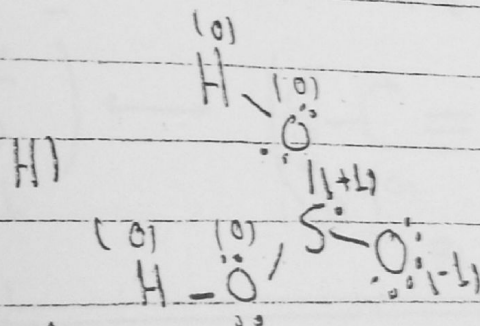 (0)
H (0)
O
H)
(+1)
(0) (0) S O (-1)
H O